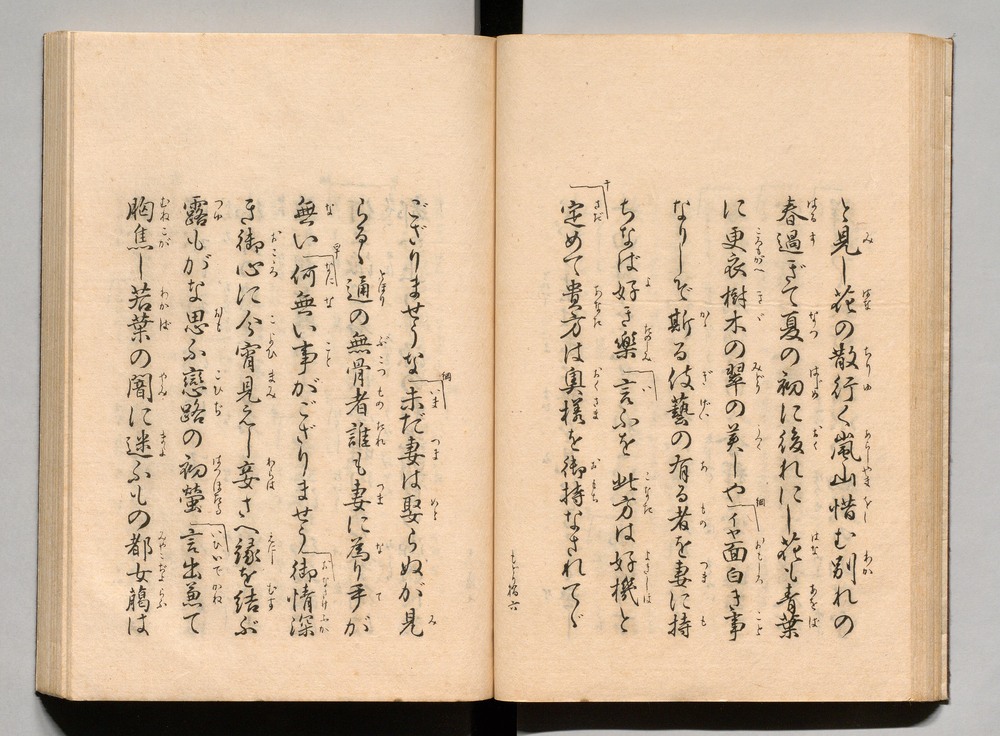 と見し花の散行く嵐山惜む別れの
春過ぎて夏の初に後れにし花も青葉
に更衣樹木の翠の美しや イヤ面白き事
なりしぞ斯る伎藝の有る者を妻に持
ちなば好き樂 言ふを此方は好機と
定めて貴方は奥樣を御持なされてゞ
ござりませうな 未だ妻は娶らぬが見
らるゝ通の無骨者誰も妻に為り手が
無い 何無い事がござりませう 御情深
き御心に今宵見えし妾さへ縁を結ぶ
露もがな思ふ戀路の初螢 言出兼て
胸焦し若葉の闇に迷ふもの都女﨟は